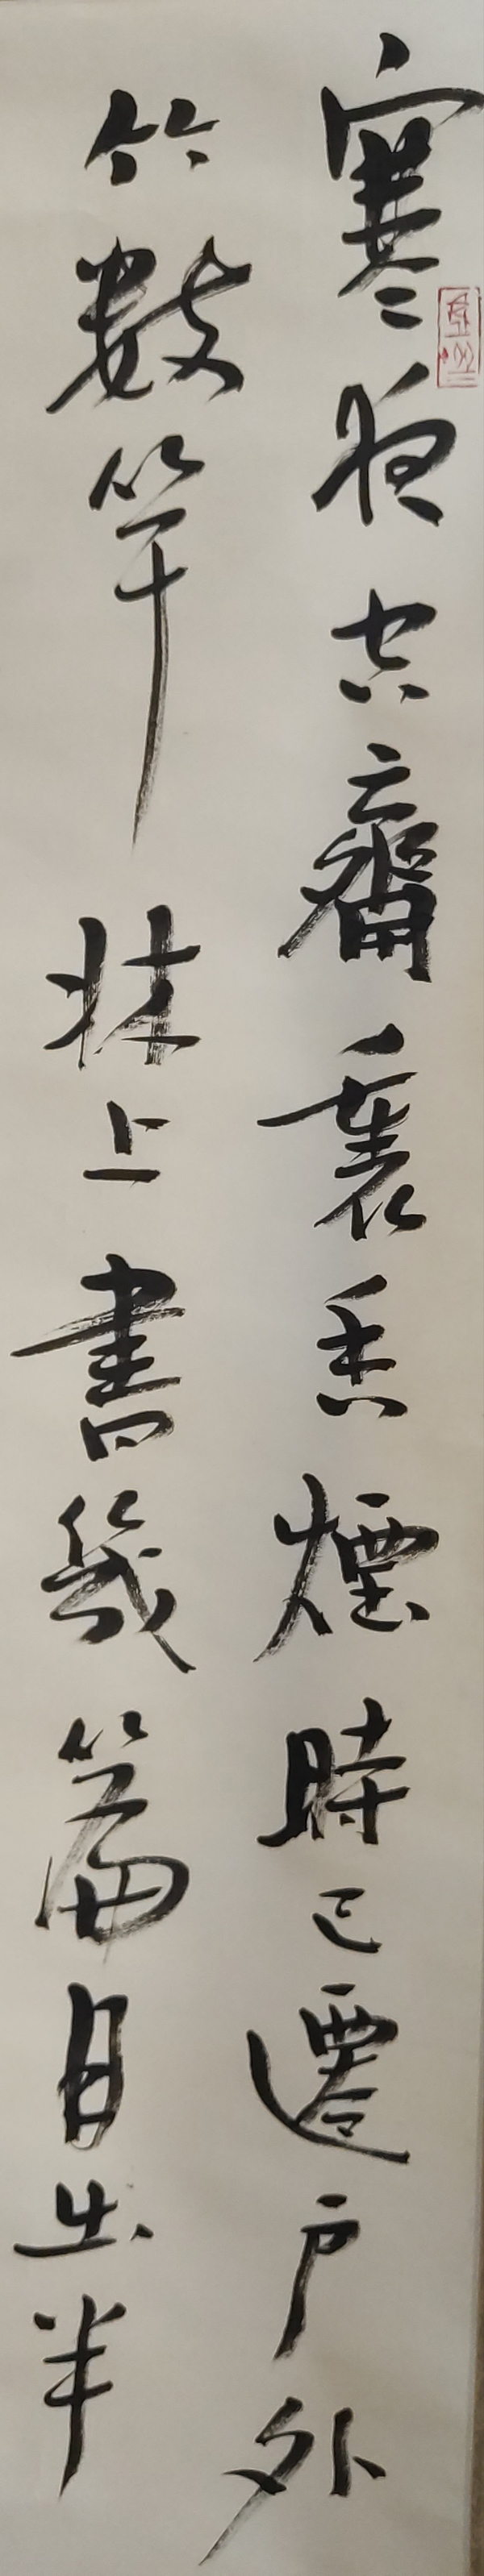 寒夜空齋裊香煙時已遷戶外
竹數竿牀上書幾篇月出半